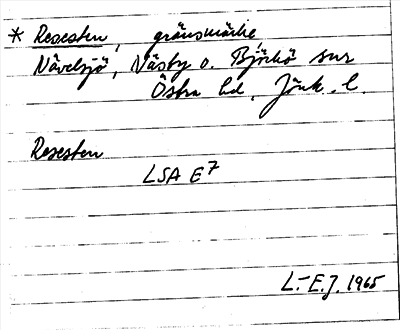 * Resesten, gränsmärke
Nävelsjö, Näsby o. Björkö snr
Östra hd, Jönk. l.
Resesten
LSA E7
L.-E.J. 1965